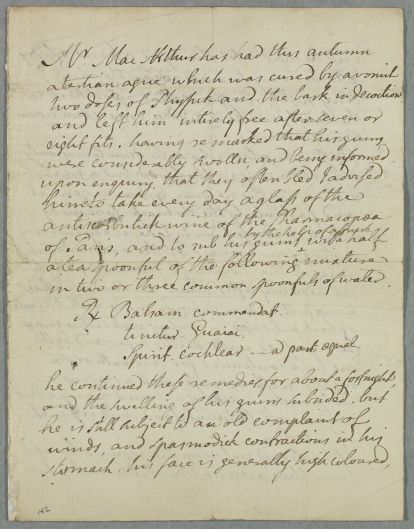 Mr Mac Arthur has had this autumn
a tertian ague which was cured by a vomit
two doses of Physick and the bark in decoction
and left him intirely free after seven or
eight fits. having remarked that his gums
were considerably swollen, and being informed,
upon enquiry, that they often bled, I advised
him to take every day a glass of the
antiscorbutick wine of the Pharmacopœa
of Paris, and to rub his gums, by the help of a brush with a half
a tea spoonful of the following mixture
in two or three common spoonfuls of water.
℞ Balsam. commendat.
tinctur. Guaiac.
Spirit. cochlear. -- a part. æqual.
he continued these remedies for about a fortnight,
and the swelling of his gums subsided. but
he is still subject to an old complaint of
winds, and spasmodick contractions in his
stomach. his face is generally high coloured,